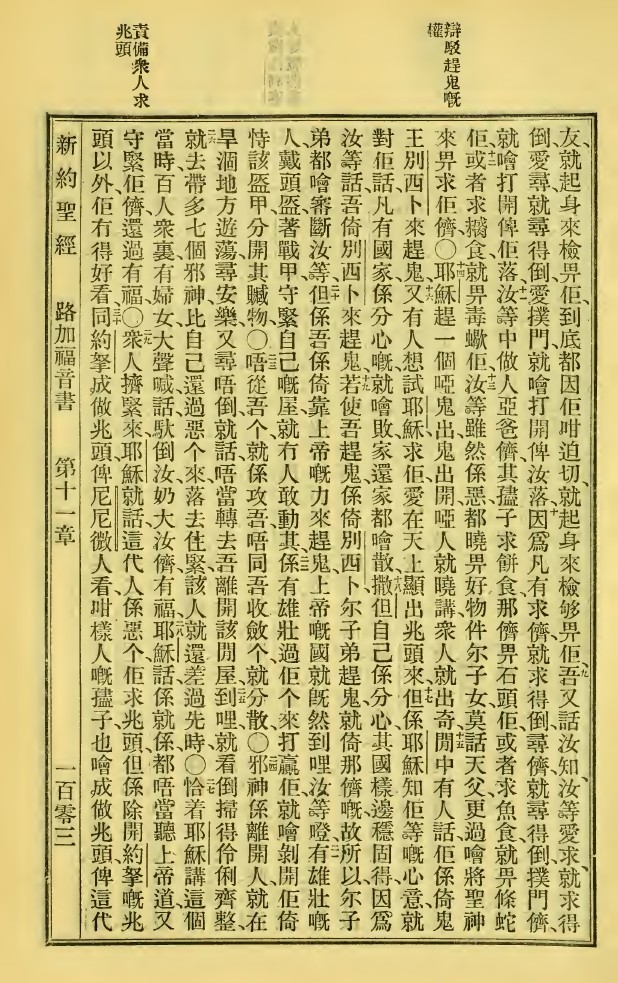 辯駁趕鬼嘅
權
責備衆人求
兆頭
友、就起身來檢畀佢、到底都因佢咁迫切、就起身來檢够畀佢、九吾又話汝知、汝等愛求、就求得
倒、愛尋、就尋得倒、愛撲門、就噲打開俾汝落、十因爲凡有求儕、就求得倒、尋儕、就尋得倒、撲門儕、
就噲打開俾佢落、十一汝等中做人亞爸儕、其𡥧子求餅食、那儕畀石頭佢、或者求魚食、就畀條蛇
佢、十二或者求㩧食、就畀毒蠍佢、十三汝等雖然係惡、都曉畀好物件尔子女、莫話天父、更過噲將聖神
來畀求佢儕〇十四耶穌趕一個啞鬼出、鬼出開、啞人就曉講、衆人就出奇、十五閒中有人話、佢係倚鬼
王別西卜來趕鬼、十六又有人想試耶穌、求佢愛在天上顯出兆頭來、十七但係耶穌知佢等嘅心意、就
對佢話、凡有國家、係分心嘅、就噲敗、家還家、都噲散撒、十八但自己係分心、其國樣邊穩固得、因爲
汝等話吾倚別西卜來趕鬼、十九若使吾趕鬼、係倚別西卜、尔子弟趕鬼、就倚那儕嘅、故所以尔子
弟都噲審斷汝等、二十但係吾係倚靠上帝嘅力來趕鬼、上帝嘅國就既然到哩汝等噔、二一有雄壯嘅
人、戴頭盔、著戰甲、守緊自己嘅屋、就冇人敢動其係、二二有雄壯過佢个來打贏佢、就噲剝開佢倚
恃該盔甲、分開其贓物〇二三唔從吾个、就係攻吾、唔同吾收斂个、就分散〇二四邪神係離開人、就在
旱涸地方遊蕩、尋安樂、又尋唔倒、就話、唔當轉去吾離開該間屋、二五到哩就看倒掃得伶俐齊整、
二六就去帶多七個邪神、比自己還過惡个來、落去住緊、該人就還差過先時〇二七恰着耶穌講這個
當時、百人衆裏有婦女大聲喊話、馱倒汝、奶大汝儕有福、二八耶穌話、係就係、都唔當聽上帝道、又
守緊佢儕還過有福〇二九衆人擠緊來、耶穌就話、這代人係惡个、佢求兆頭、但係除開約拏嘅兆
頭以外、佢冇得好看、三十同約拏成做兆頭俾尼尼微人看、咁樣人嘅𡥧子、也噲成做兆頭俾這代
新約聖經　路加福音書　第十一章　一百零三